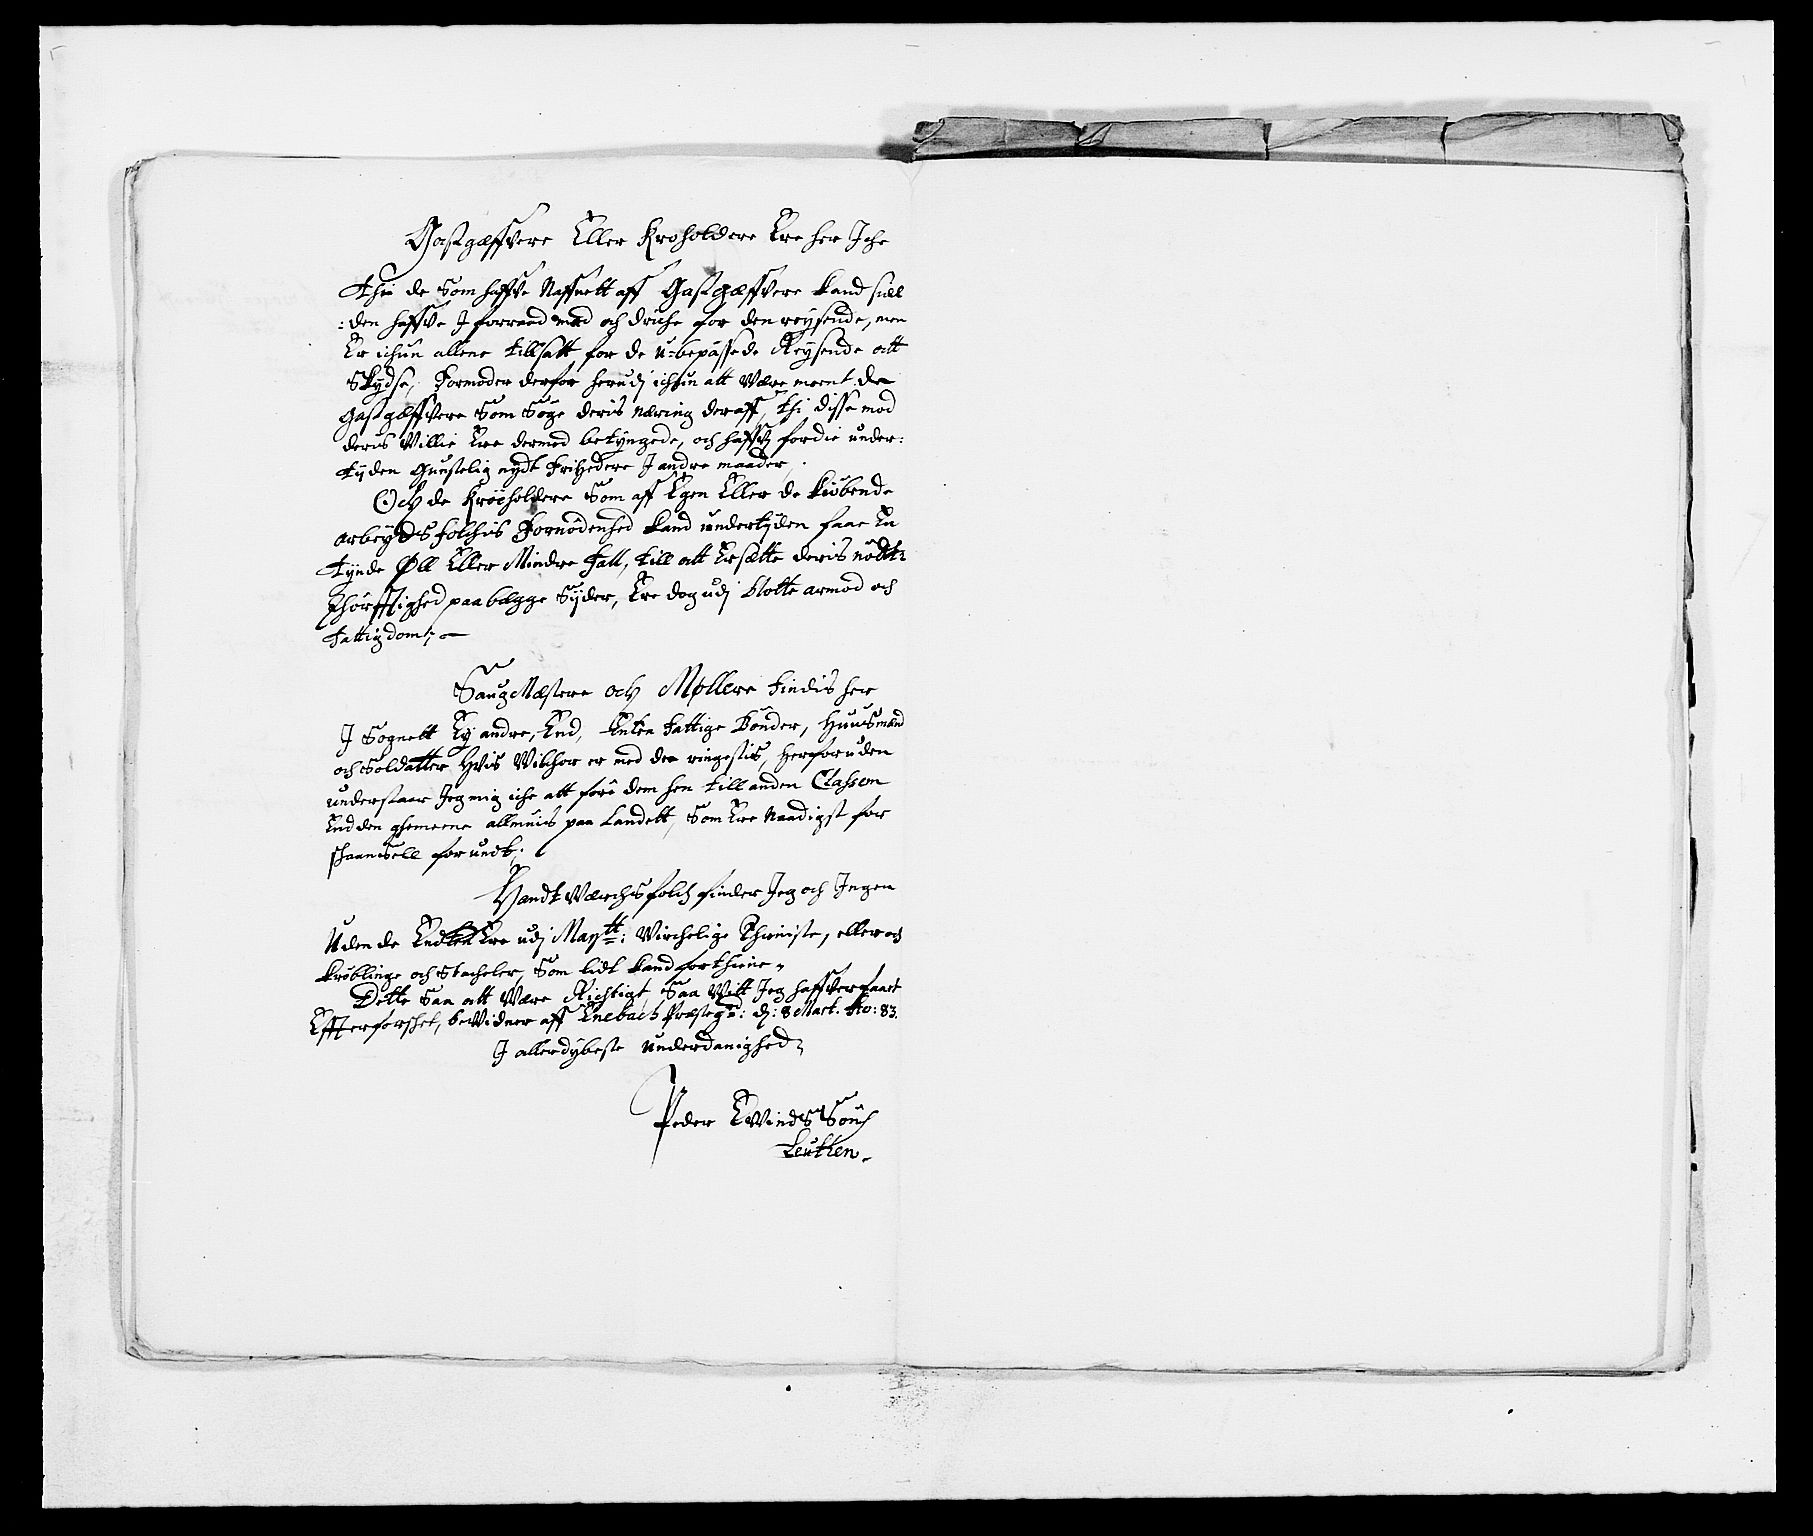 Gastgæffvere Eller Kroholdere Ere her Iche
thi de Som haffve Naffnett aff Gastgæffvere kand siell
:den haffve I forraad mad och driche for den reysende, men
Er ichun allene tillsatt, for de u-bepassede Reysende att
Skydse, Formoder derfor herudj ichun att Være meent de
Gastgæffvere Som Søge deris næring deraff, thi disse mod
deris Villie Ere dermed betyngede, och haffve fordie under:
tyden gunstelig nydt Friheder I andre maader,
Och de Kroeholdere Som aff Egen Eller de kiøbende
arbeyds folchis Fornødenhed kand undertyden faae En
tynde Øll Eller Mindre fatt, till att Ersætte deris nødt:
thørfftighed paa begge Syder, Ere dog udj blotte armod och
fattigdom; —
Saug Mestere och Møllere findis her
I Sognett Ey andre, End, Enten fattige Bønder, Huusmænd
och Soldatter Hvis Vilchor er med de ringeste, herforuden
understaar Jeg mig iche att føre dem hen till anden Classem
End den gemeene allmuis paa Landett, Som Ere Naadigst for
schaansell forundt;
Handt Værchsfolch finder Jeg och Ingen
Uden de Endten Ere udj Maytt: Virchelige Thieniste, eller och
krøblinge och Stacheler, Som lidt kand forthiene,
Dette Saa att Være Richtigt, Saa Vitt Jeg haffver faaet
Effterforsket, beVidner aff Enebach Præstegd: d: 8 Mart. Ao: 83.
I allerdybeste underdanighed,
Peder EWindsSøn
Leutten.